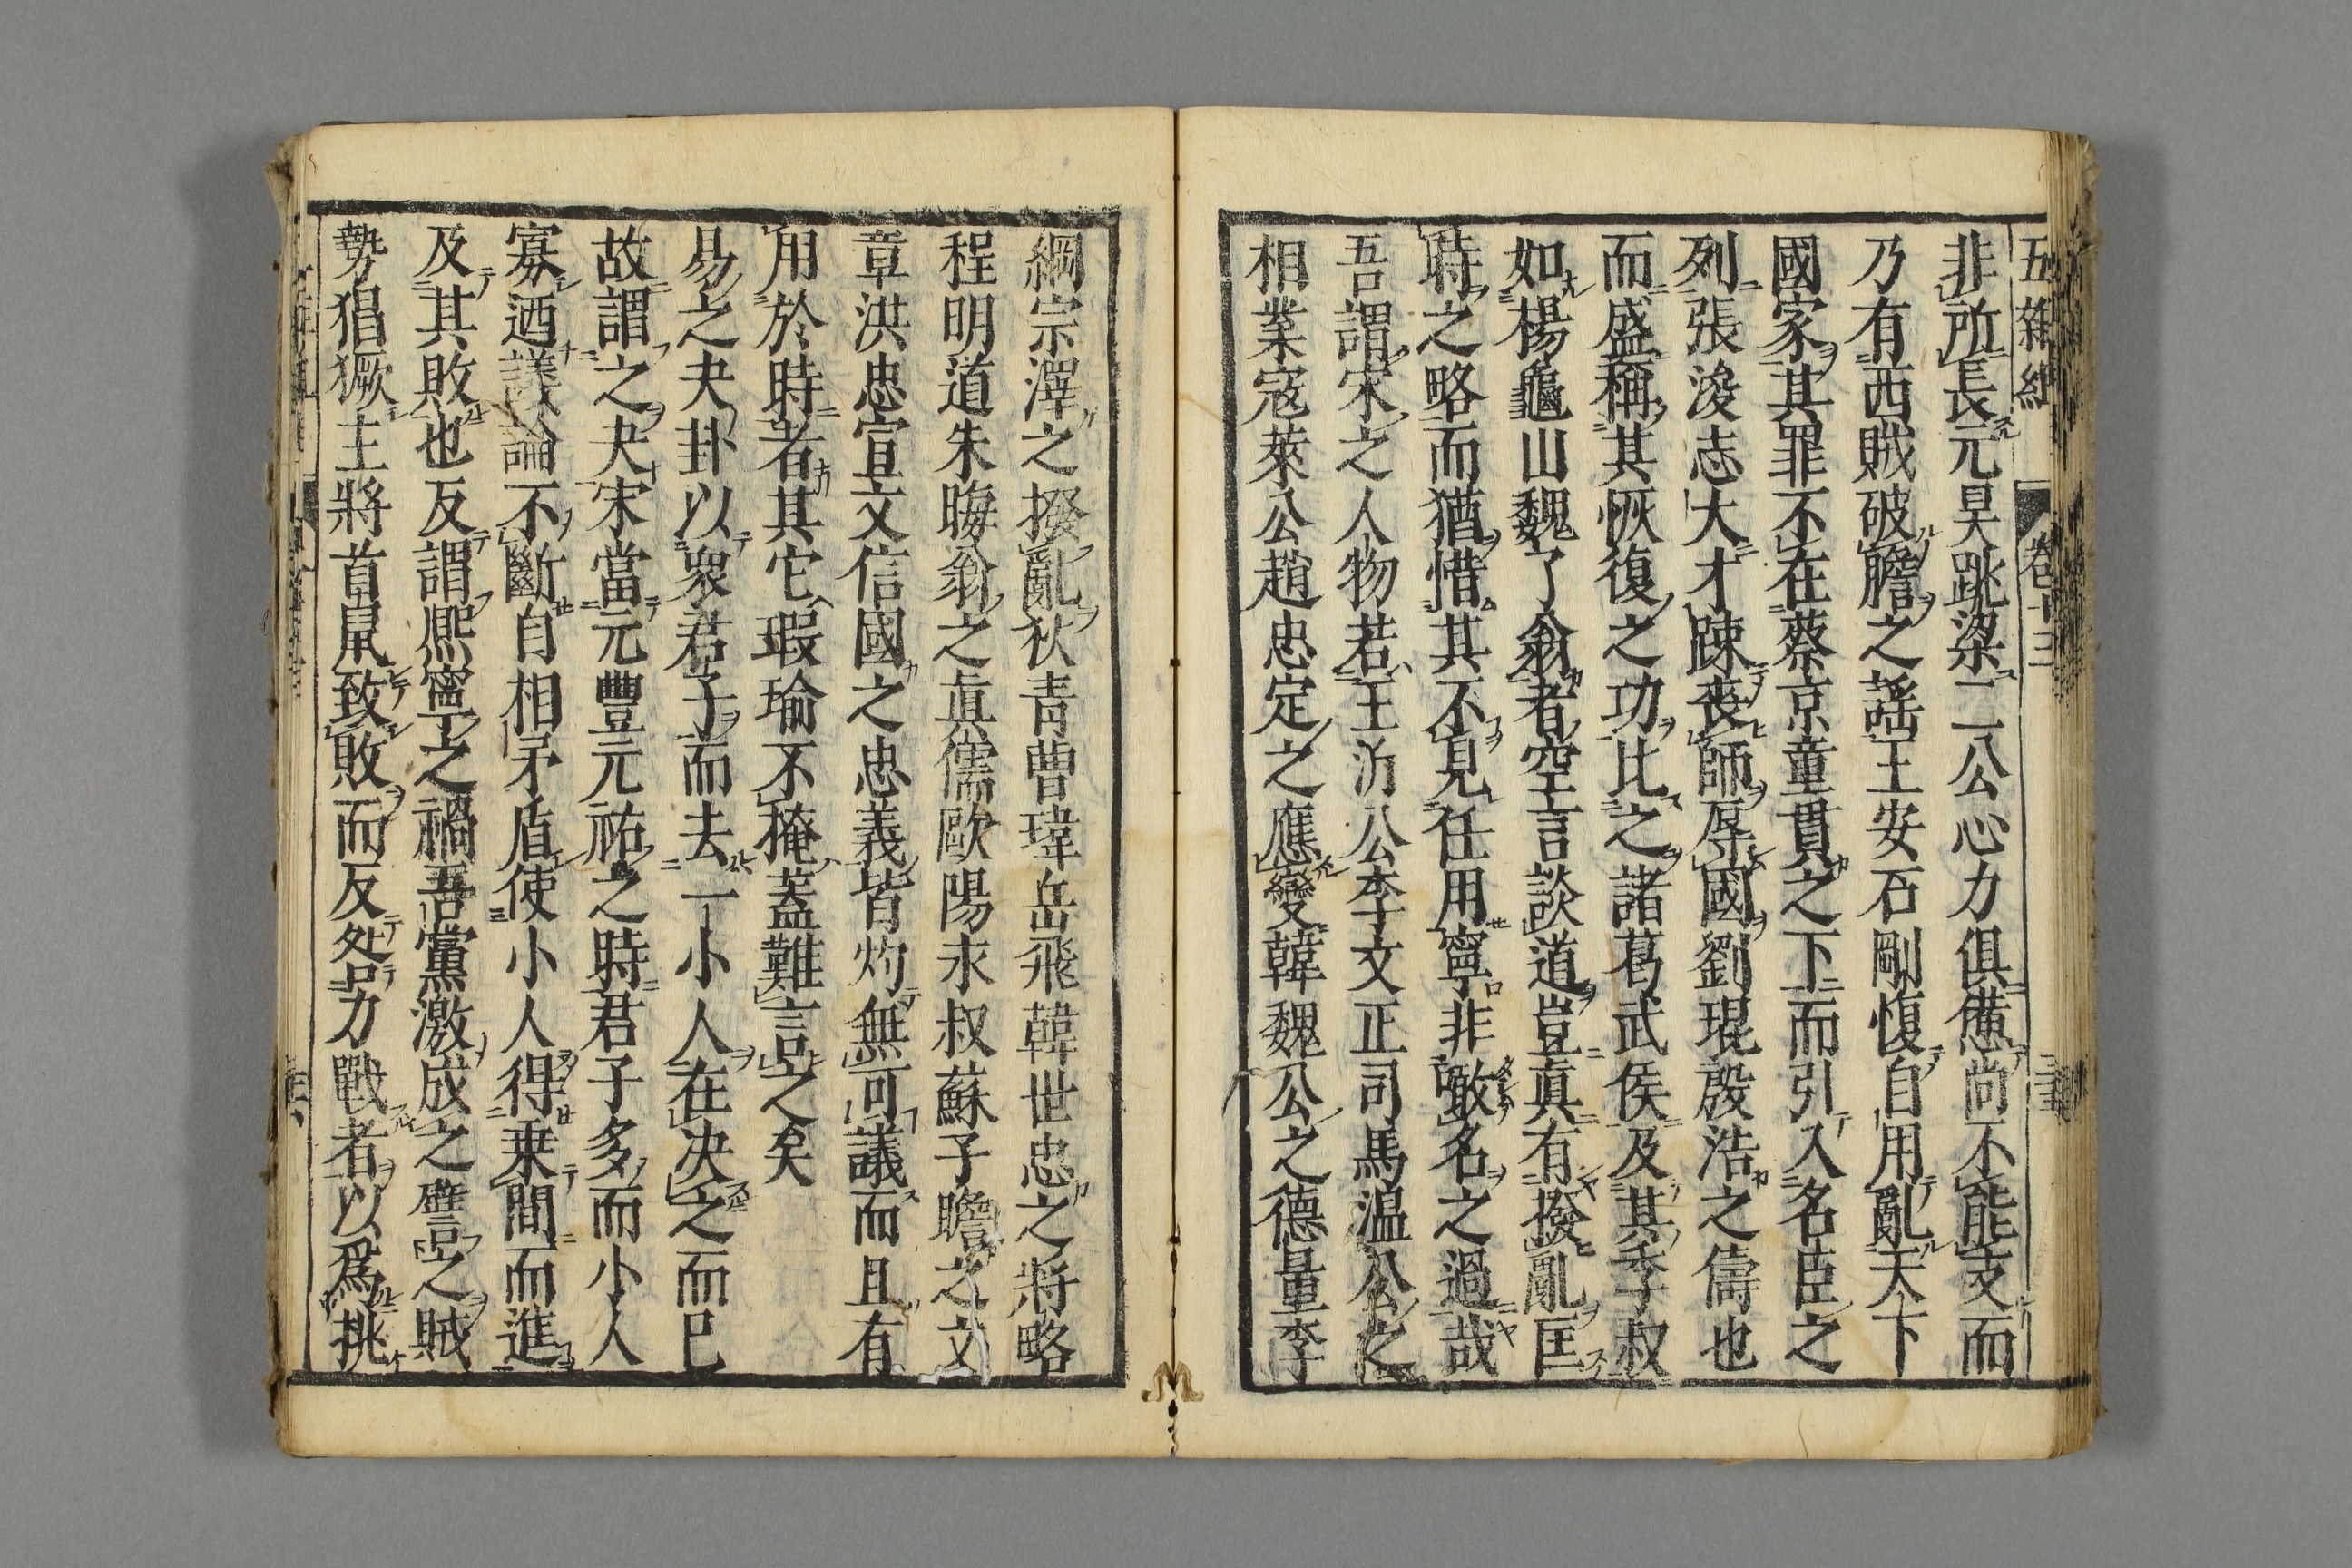 五雜組 卷十三
非所長元昊跳梁二公心力俱備尚不能支而
乃有西賊破膽之謡王安石剛愎自用亂天下
國家其罪不在蔡京童貫之下而引入名臣之
列張浚志大才踈喪師辱國劉琨殷浩之儔也
而盛稱其恢復之功比之諸葛武侯及其季叔
如楊龜山魏了翁者空言談道豈真有撥亂匡
時之略而猶惜其不見任用寧非噉名之過哉
吾謂宋之人物若王沂公李文正司馬溫公之
相業寇萊公趙忠定之應變韓魏公之德量李
綱宗澤之撥亂狄青曹瑋岳飛韓世忠之將略
程明道朱晦翁之真儒歐陽永叔蘇子瞻之文
章洪忠宣文信國之忠義皆灼無可議而且有
用於時者其它瑕瑜不掩蓋難言之矣
易之夬卦以衆君子而去一小人在決之而已
故謂之夬宋當元豐元祐之時君子多而小人
寡迺議論不斷自相矛盾使小人得乘間而進
及其敗也反謂熈寧之禍吾黨激成之譬之賊
勢猖獗主將首鼠致敗而反咎力戰者以爲挑